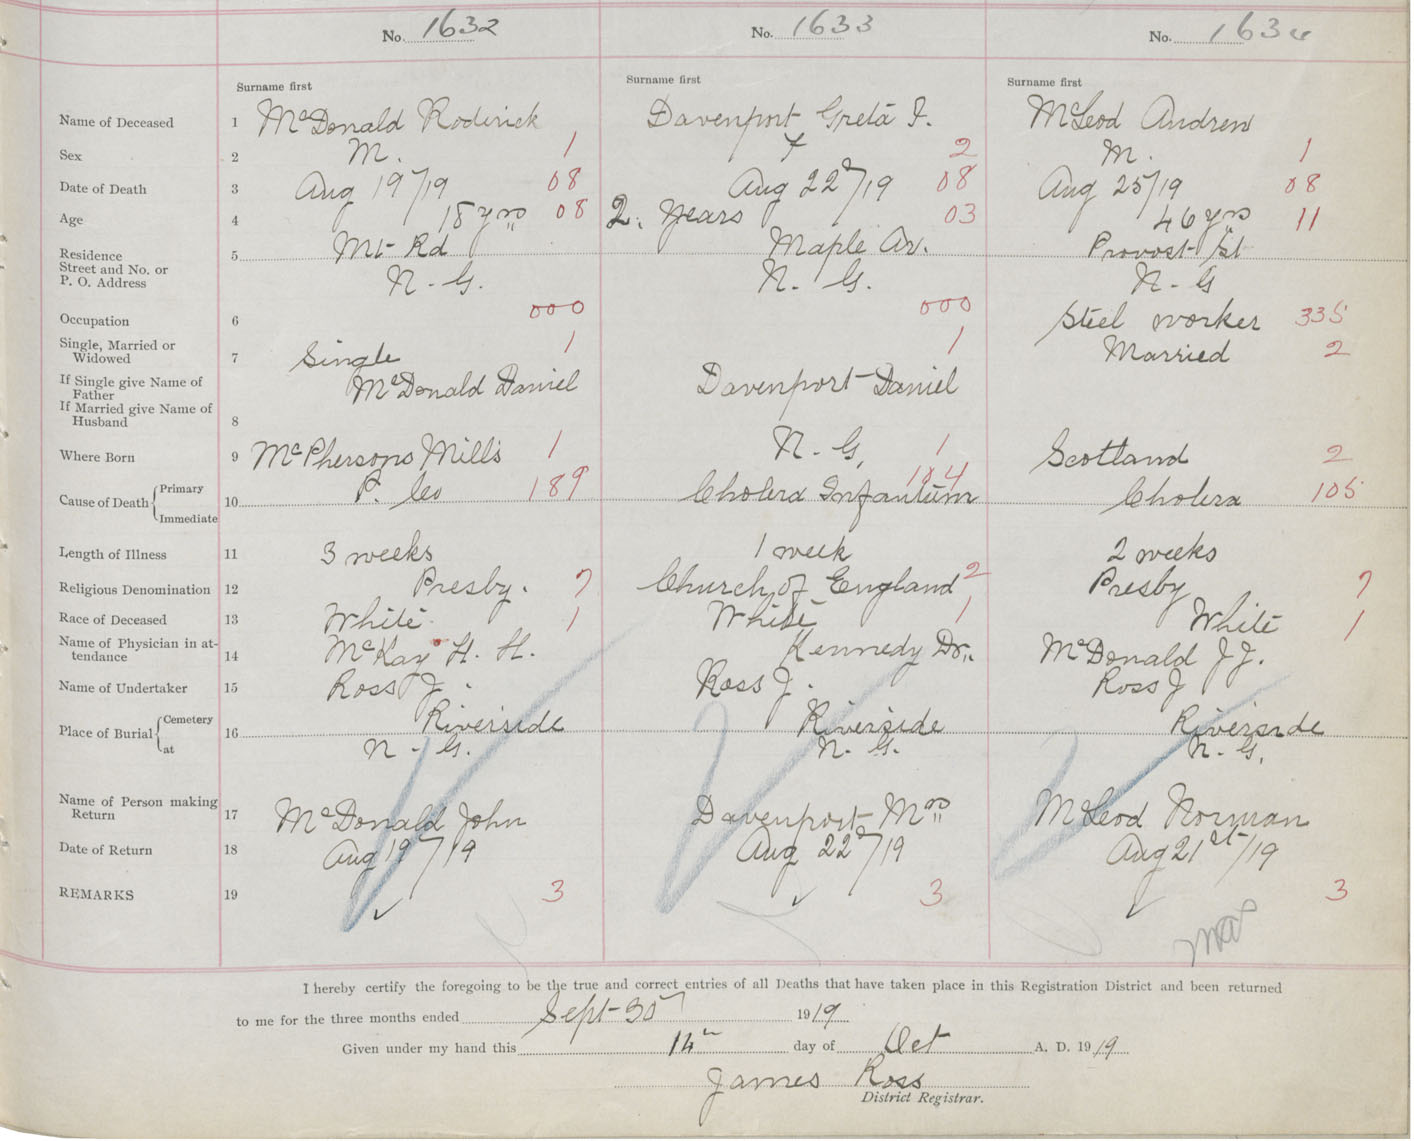 No. 1632 No. 1633 No. 1634
Surname first Surname first Surname first
Name of Deceased 1 McDonald Roderick Davenport Greta I. McLeod Andrew
Sex 2 M. 1 F 2 M. 1
Date of Death 3 Aug 19"/19 08 Aug 22"/19 08 Aug 25/19 08
Age 4 18 yrs 08 2. years 03 46 yrs 11
Residence
Street and No. or
P. O. Address
5 Mt Rd Maple Av. Provost St
N. G. N. G. N. G
000 000
Occupation 6 Steel worker 335
Single, Married or
Widowed
7 Single 1 1 Married 2
If Single give Name of
Father
If Married give Name of
Husband
8 McDonald Daniel Davenport Daniel
Where Born 9 McPhersons Mills 1 N. G. 1 Scotland 2
P. Co 189 104 105
Cause of Death Primary
Immediate
10 Cholera Infantum Cholera
Length of Illness 11 3 weeks 1 week 2 weeks
Religious Denomination 12 Presby. 7 Church of England 2 Presby 7
Race of Deceased 13 White 1 White 1 White 1
Name of Physician in at-
tendance
14 McKay H. H. Kennedy Dr. McDonald J J.
Name of Undertaker 15 Ross J. Ross J. Ross J
Place of Burial Cemetery
at
16 Riverside Riverside Riverside
N. G. N. G. N. G.
Name of Person making
Return
17 McDonald John Davenport Mrs McLeod Norman
Date of Return 18 Aug 19"/19 Aug 22"/19 Aug 21st/19
REMARKS 19 3 3 3
I hereby certify the foregoing to be the true and correct entries of all Deaths that have taken place in this Registration District and been returned
to me for the three months ended Sept 30 1919
Given under my hand this 14th day of Oct A. D. 1919
James Ross
District Registrar.